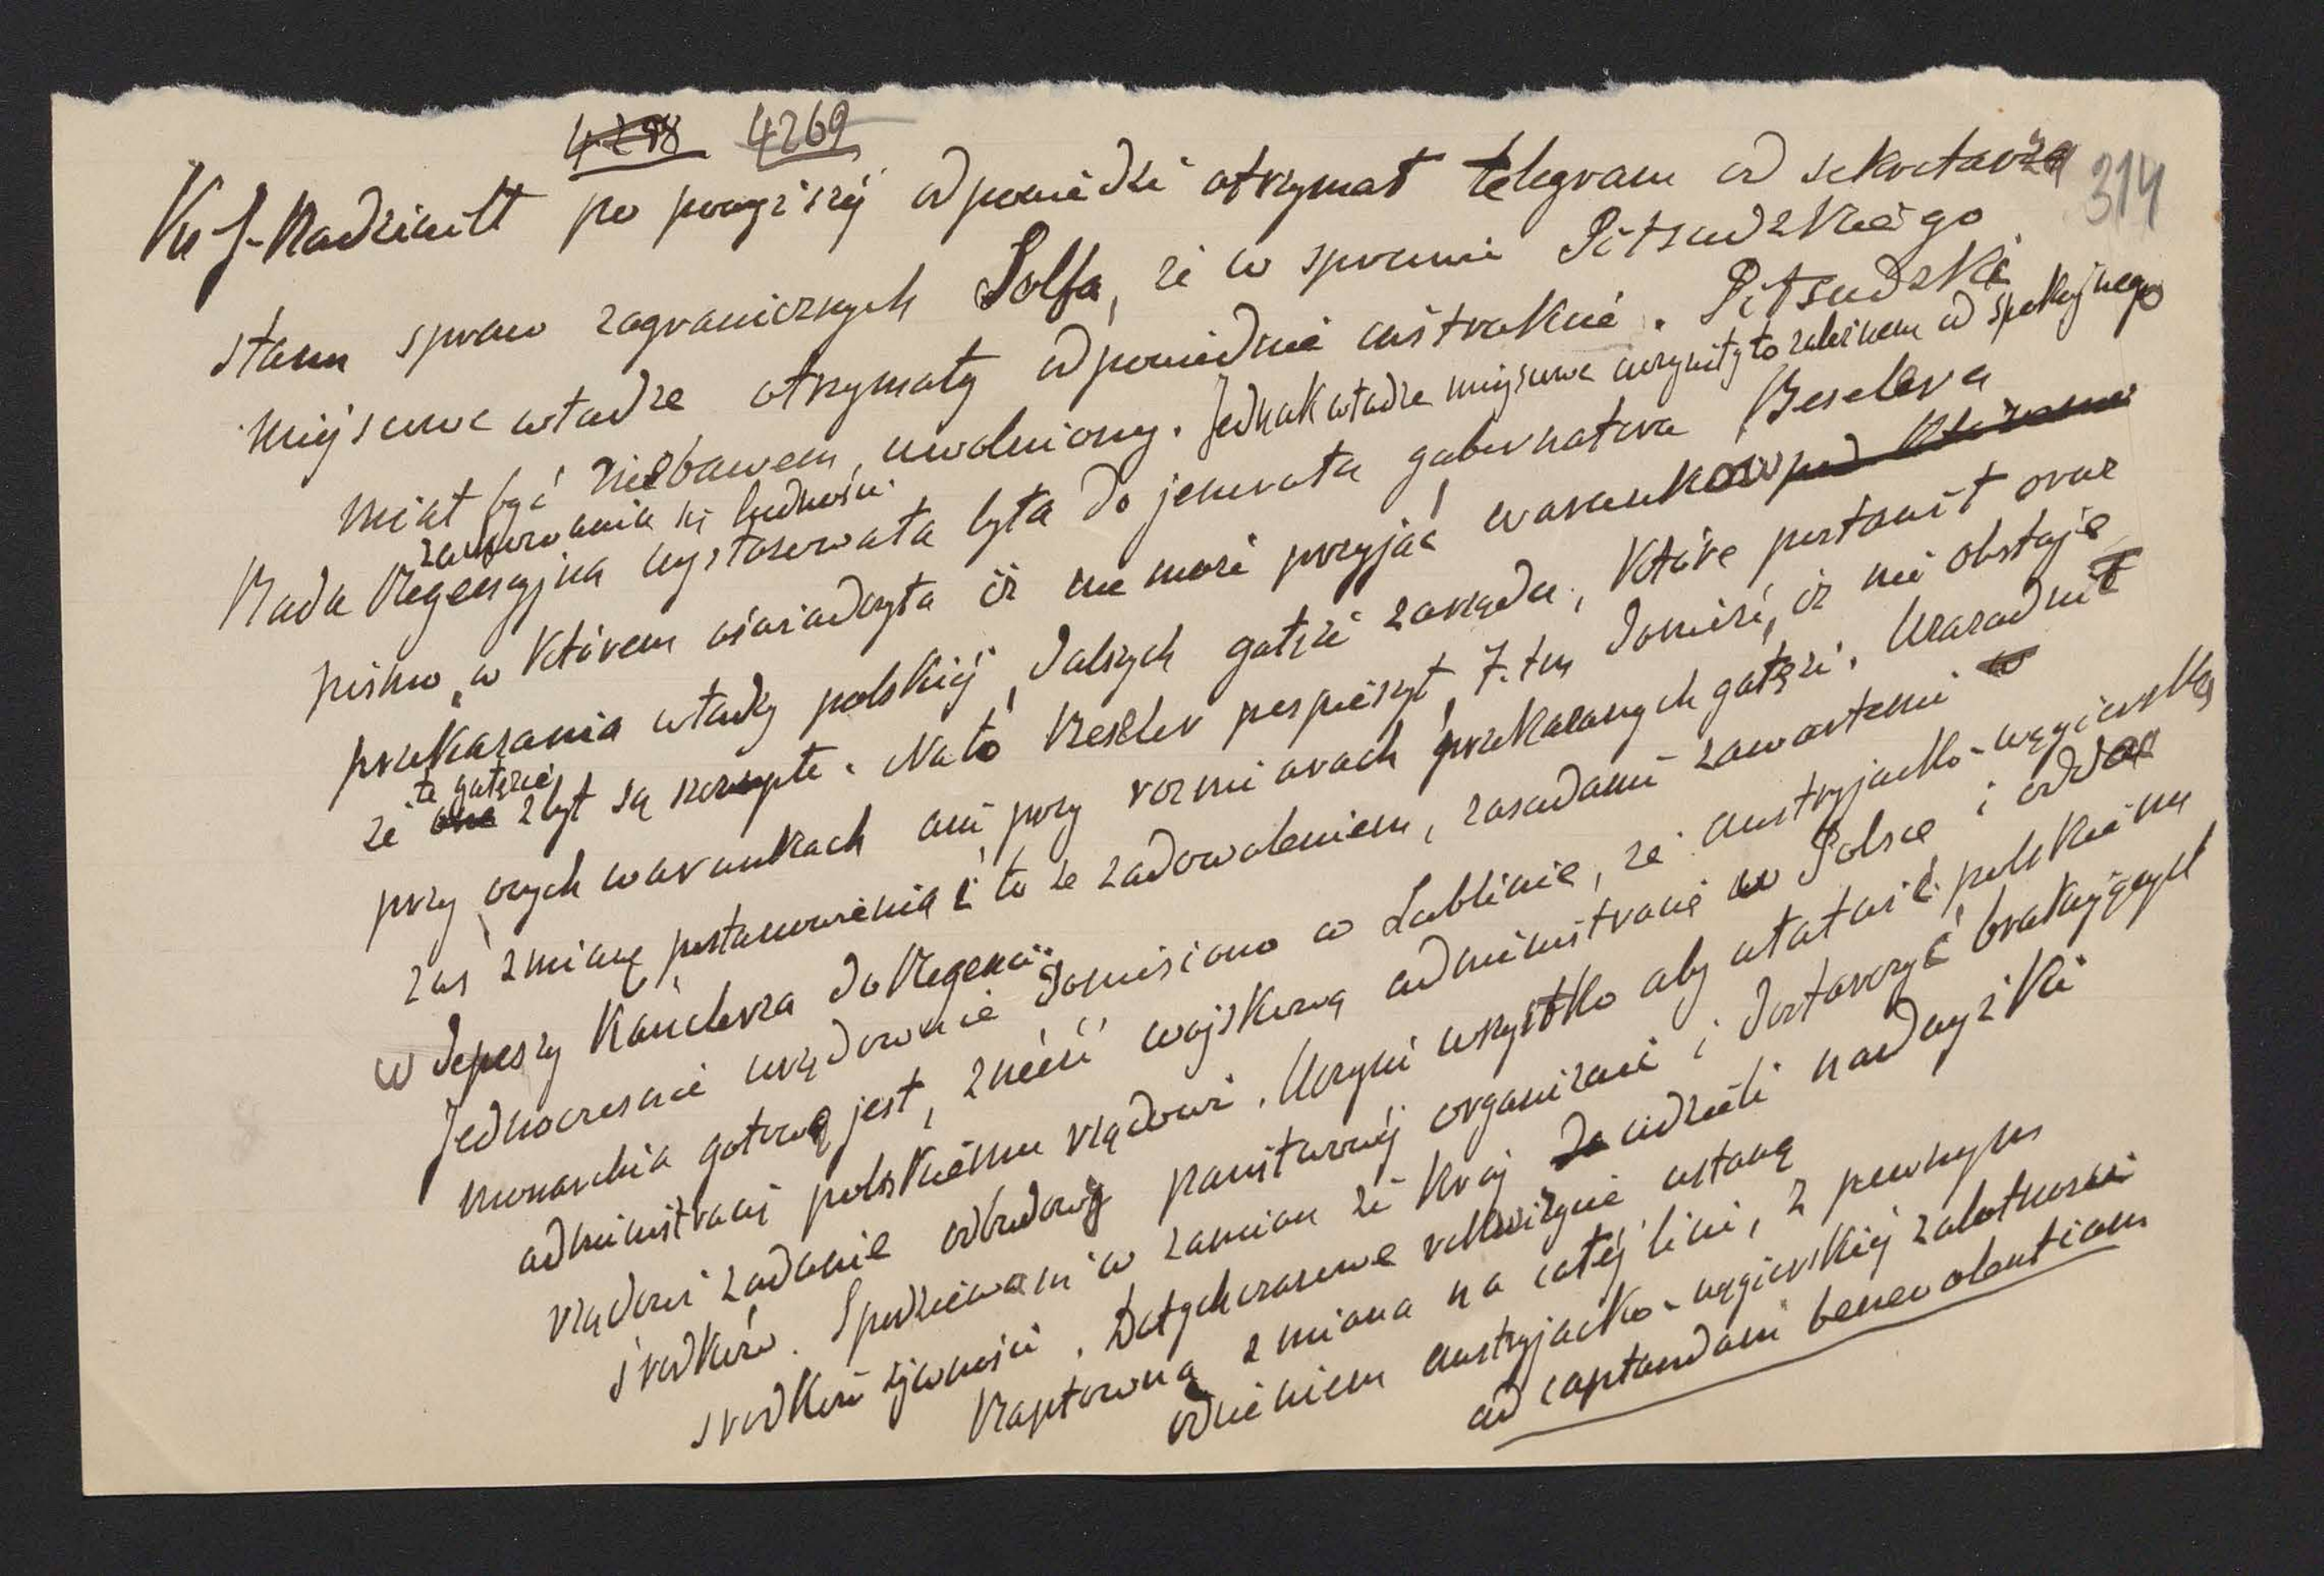 4298 4269
314
Ks J. Radziwiłł po powyższéj odpowiedzi otrzymał telegram od sekretarza
stanu spraw zagranicznych Solfa, że w sprawie Piłsudzkiego
miejscowe władze otrzymały odpowiednie instrukcie. Piłsudzki
miał być niebawem uwolniony. Jednak władze miejscowe uczyniły to zależnem od spokojnego
zachowania się ludności.
Rada Regencyjna wystosowała była do jenerała gubernatora Beselera
pismo, w którem oświadczyła iż nie może przyjąć warunków pod któremi
przekazania władzy polskiéj, dalszych gałęzi zarządu, które postawił oraz
te gałęzie
że one zbyt są szczupłe. Na to Beseler pospieszył, z. tem donieść, iż nie obstaje
przy onych warunkach ani przy rozmiarach przekazanych gałęzi. Uzasadnił
zaś zmianę postanowienia i to ze zadowoleniem, zasadami zawartemi w
w depeszy Kanclerza do Regencii.
Jednocześnie urzędownie doniesiono w Lublinie, że austryjacko-węgierska
monarchia gotową jest, znieść wojskową administracię w Polsce i oddać
administracię polskiému rządowi. Uczyni wszystko aby ułatwić polskiému
rządowi zadanie odbudowy państwowéj organizacii i dostarczyć brakujących
środków. Spodziewam w zamian że kraj da udzieli nadwyżki
środków żywności. Dotychczasowe rekwizycie ustaną
Raptowna zmiana na całéj linii, z pewnym
odcieniem austryjacko-węgierskiéj zalotności
ad captandam benevolentiam